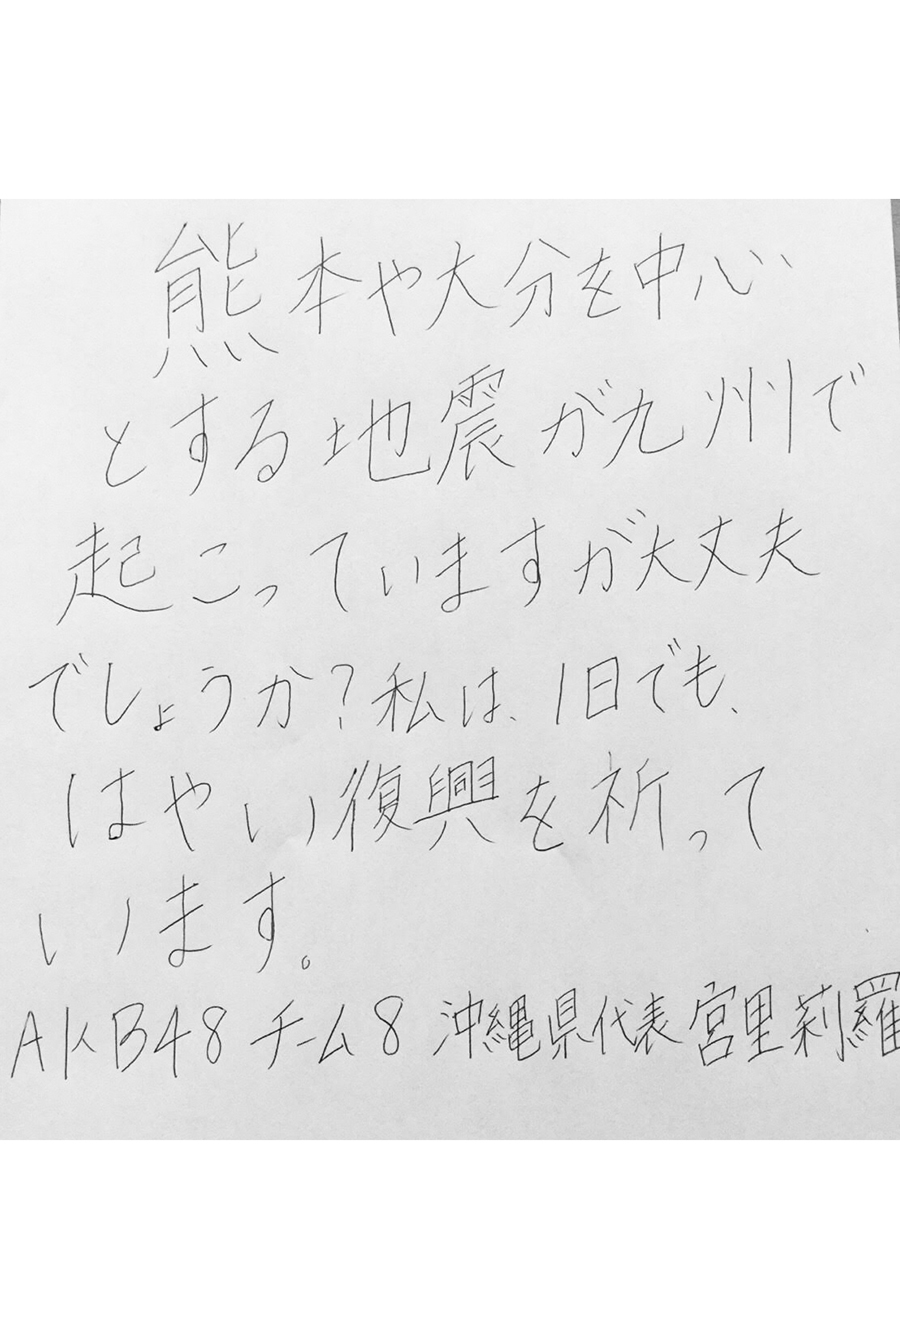 熊本や大分を中心
とする地震が九州で
起こっていますが大丈夫
でしょうか?私は、1日でも、
はやい復興を祈って
います。
AKB48 チーム8 沖縄県代表 宮里莉羅